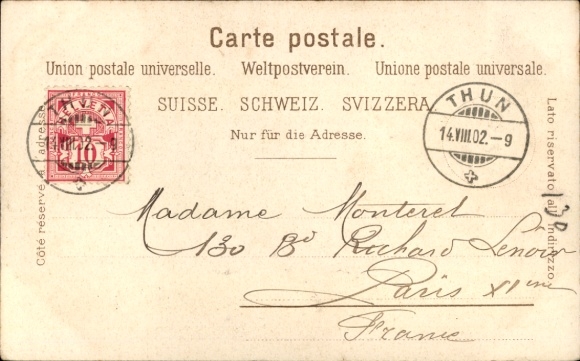 Carte postale.
Union postale universelle. Weltpostverein. Unione postale universale.
SUISSE. SCHWEIZ. SVIZZERA
Nur für die Adresse.
Côté réservé à l'adresse.
Lato riservato all'indirizzo.
HELVETIA
10
THUN
14.VIII.02.-9
THUN
14.VIII.02.-9
130
Madame Monteret
130 Bd Richard Lenoir
Paris XIème
France